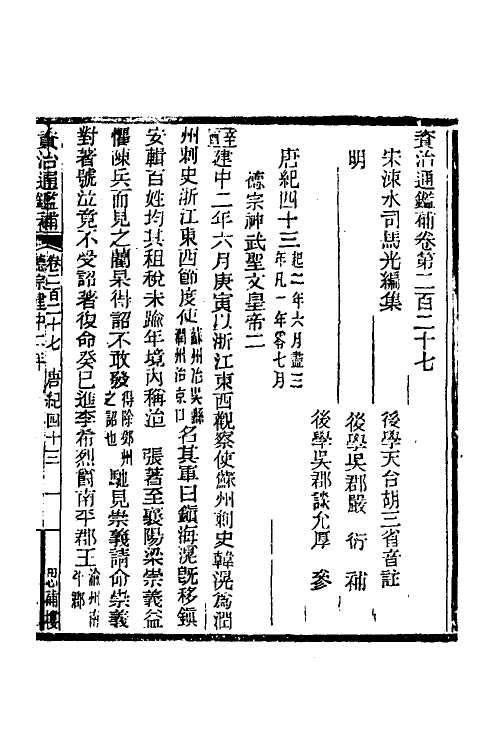 資治通鑑補卷第二百二十七
宋涑水司馬光編集　後學天台胡三省音註
明　後學吳郡嚴　衍　補
後學吳郡談允厚　參
唐紀四十三起二年六月盡三年凡一年零七月
德宗神武聖文皇帝二
辛酉建中二年六月庚寅以浙江東西觀察使蘇州刺史韓滉為潤
州刺史浙江東西節度使蘇州治吳縣潤州治京口名其軍曰鎮海滉既移鎮
安輯百姓均其租稅未踰年境內稱治　張著至襄陽梁崇義益
懼陳兵而見之藺杲得詔不敢發得除鄧州之詔也馳見崇義請命崇義
對著號泣竟不受詔著復命癸巳進李希烈爵南平郡王渝州南平郡
資治通鑑補　卷二百二十七　德宗建中二年　唐紀四十三　一　思補樓